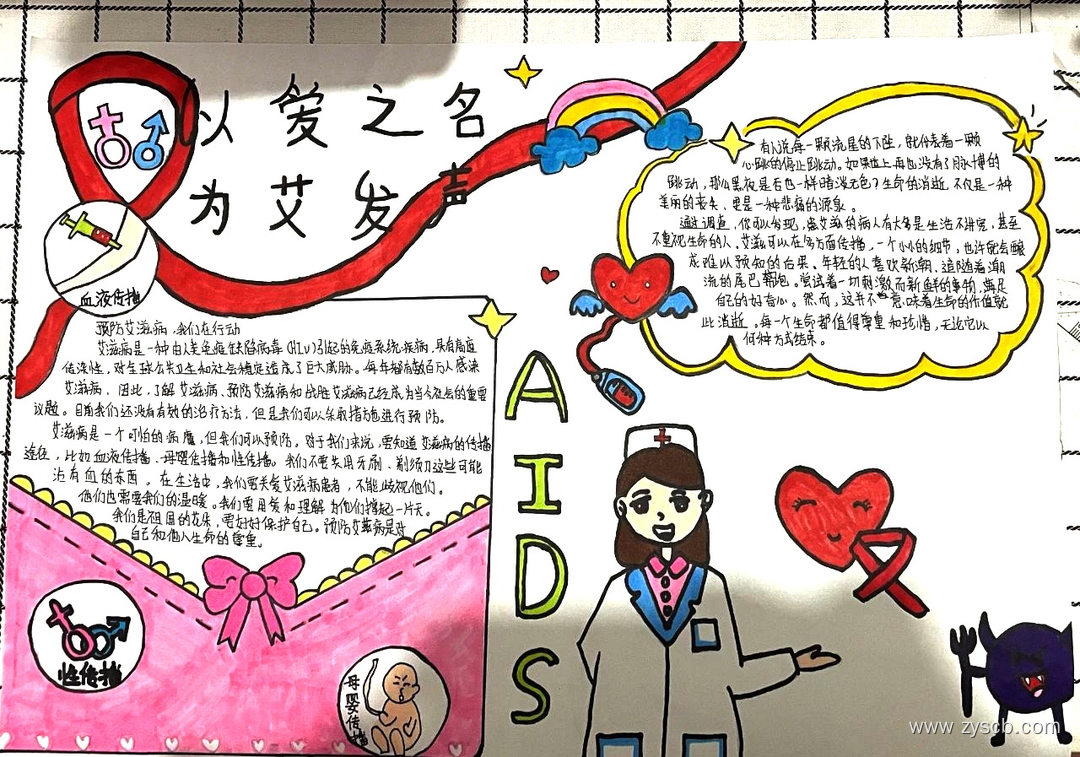 以爱之名
为艾发声
血液传播
预防艾滋病,我们在行动
艾滋病是一种由人类免疫缺陷病毒(HIV)引起的免疫系统疾病,具有高度
传染性,对全球公共卫生和社会稳定造成了巨大威胁。每年都有数百万人感染
艾滋病,因此,了解艾滋病、预防艾滋病和战胜艾滋病已经成为当今社会的重要
议题。目前我们还没有有效的治疗方法,但是我们可以采取措施进行预防。
艾滋病是一个可怕的病魔,但我们可以预防。对于我们来说,要知道艾滋病的传播
途径,比如血液传播、母婴传播和性传播。我们不要共用牙刷、剃须刀这些可能
沾有血的东西。在生活中,我们要关爱艾滋病患者,不能歧视他们。
他们也需要我们的温暖。我们要用爱和理解为他们撑起一片天。
我们是祖国的花朵,要好好保护自己。预防艾滋病是对
自己和他人生命的尊重。
性传播
母婴传播
AIDS
有人说每一颗流星的下坠,就代表着一颗
心跳的停止跳动。如果世上再也没有了脉搏的
跳动,那么黑夜是否也一样暗淡无色?生命的消逝不仅是一种
美丽的丧失、更是一种悲痛的源泉。
通过调查,你可以发现,患艾滋的病人有大多是生活不讲究,甚至
不重视生命的人。艾滋可以在多方面传播,一个小小的细节,也许就会酿
成难以预知的后果。年轻的人喜欢新潮、追随着潮
流的尾巴奔跑。尝试着一切刺激而新鲜的事物,满足
自己的好奇心。然而,这并不意味着生命的价值就
此消逝。每一个生命都值得尊重和珍惜,无论它以
何种方式结束。
www.zyscb.com